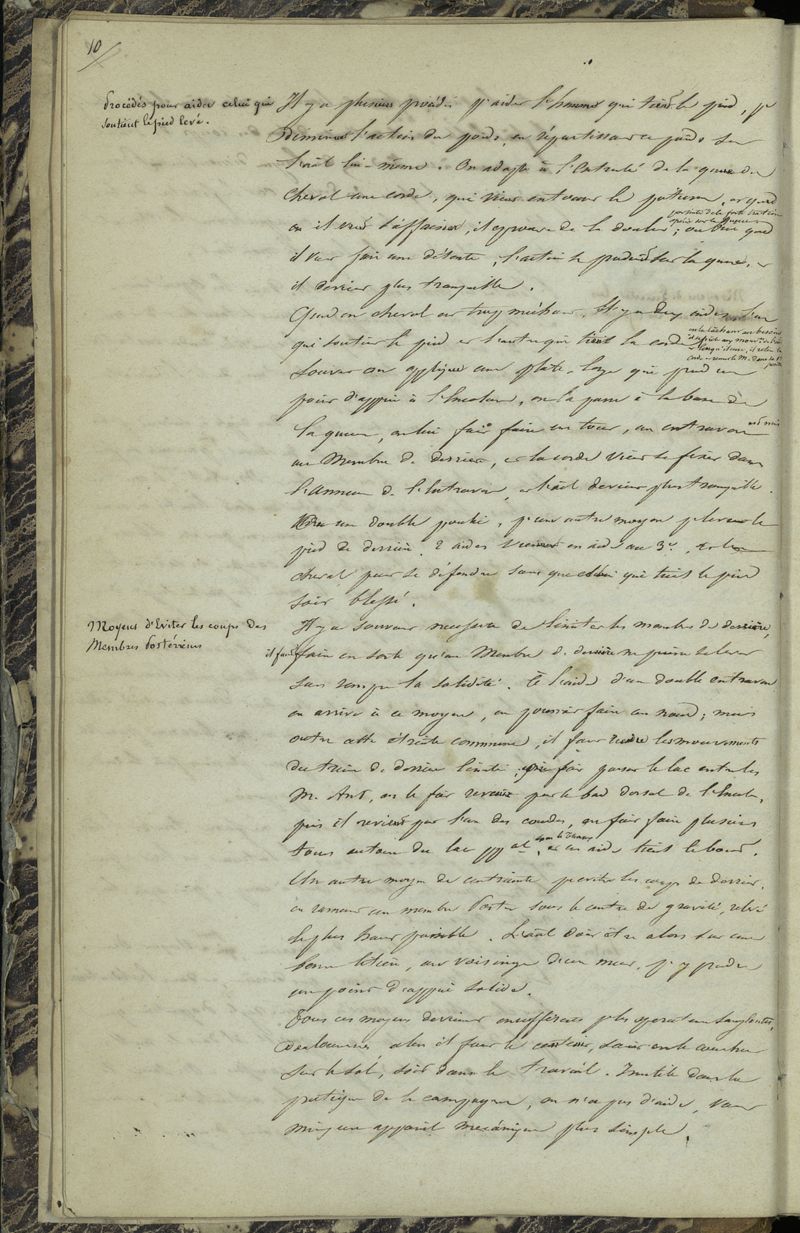 10/
Procédés pour aider celui qui
soutient le pied levé.
Il y a plusieurs procédés pr aider l'homme qui tient le pied, pr
Diminuer l'action du poids, en répartissant ce poids sur
l'anl lui-même. On adapte à l'extrémité de la queue du
cheval une corde, qui vient entourer le paturon, et quand
on il veut s'affaisser, il éprouve de la douleur; ou bien quand
par suite de la forte traction
opérée sur la queue
il veut faire une détente, l'action se produit sur la queue, et
il devient plus tranquille.
Quand un cheval est trop méchant, Il y a deux aides, l'un
qui soutient le pied et l'autre qui tient la corde
Souvent on applique une plate-longe qui prend un
point d'appui à l'encolure, on la passe à la base de
la queue, on lui fait faire un tour, un entravon est mis
au Membre de derrière, et la corde vient se fixer dans
l'anneau de l'Entravon, et l'anl devient plus tranquille.
un double poulie, pr un autre moyen pr lever le
pied de derrière, 2 aides viennent en aide au 3e, et le
cheval peut se défendre sans que celui qui tient le pied
soit blessé.
Moyens d'Eviter les coups des
Membres Postérieurs
Il y a souvent nécessité de limiter les membres de derrière,
il faut faire en sorte qu'un Membre de derrière ne puisse se lever
sans rompre la solidité. à l'aide d'un double entravon
on arrive à ce moyen, on pourrait faire un nœud; mais
outre cette étroite commune, il faut rendre les mouvements
du train de derrière limités, on fait passer le lac entre les
M. Ant, on le fait revenir par le bord dorsal de l'Encolure,
puis il revient par l'un des coudes, on fait faire plusieurs
tours autour du lac ppal, et un aide tient le bout.
Un autre moyen de contrainte pr eviter les coups de derrière,
en ramenant un membre Postr sous le centre de gravité, relevé
le plus haut possible. L'anl doit être alors sur une
bonne litière, au voisinage d'un mur, pr y prendre
un point d'appui solide.
Tous ces moyens devienent insuffisants pr les operations sanglantes,
Douloureuses alors il faut le contenir, soit en le couchant
sur le sol, soit dans le travail. Inutile dans la
pratique de la campagne, on n'a pas d'aide,
un appareil mecanique plus simple.